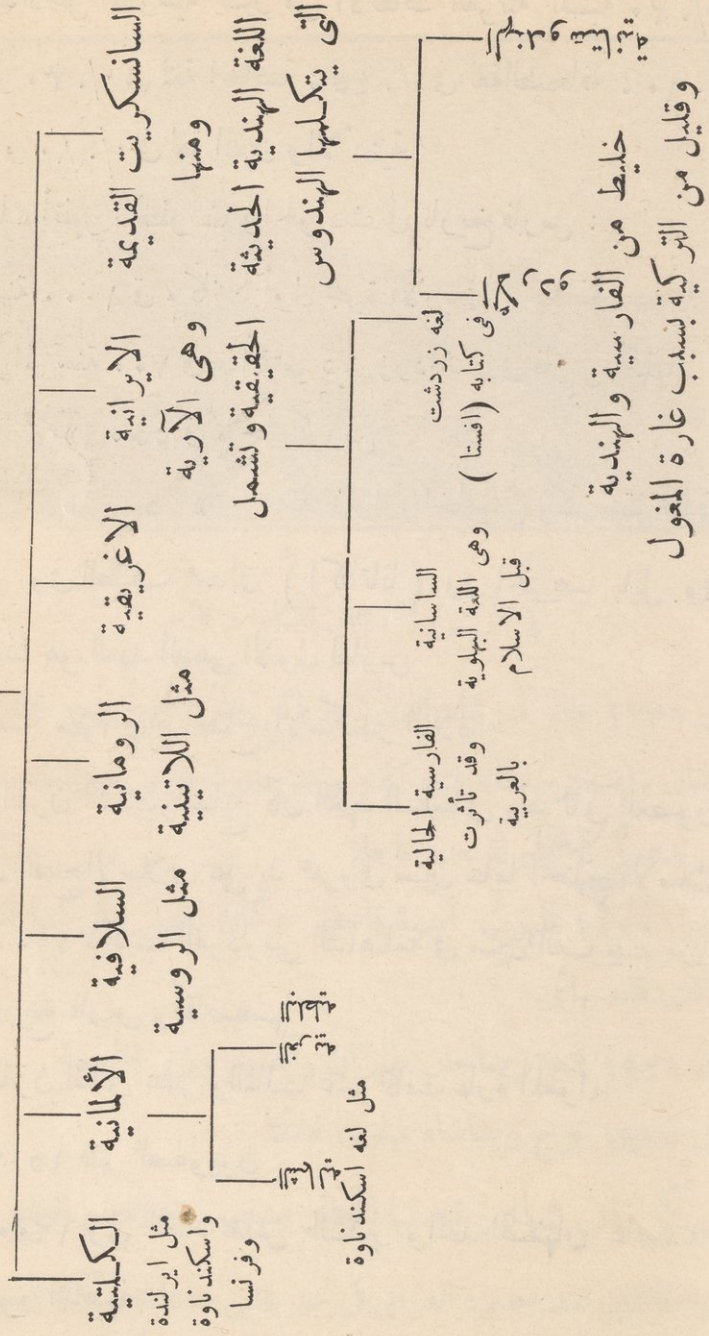 السانسكريت القديمة
ومنها
اللغة الهندية الحديثة
التى يتكلمها الهندوس
الايرانية
وهى الآرية
الحقيقية وتشمل
الاغريقية
الرومانية
مثل اللاتينية
السلافية
مثل الروسية
الألمانية
الكلتية
مثل ايرلندة
واسكندناوة
وفرنسا
مثل لغه اسكندناوة
لغه زردشت
فى كتابه (افستا)
الساسانية
وهى اللغة البهلوية
قبل الاسلام
الفارسية الحالية
وقد تأثرت
بالعربية
خليط من الفارسية والهندية
وقليل من التركية بسبب غارة المغول